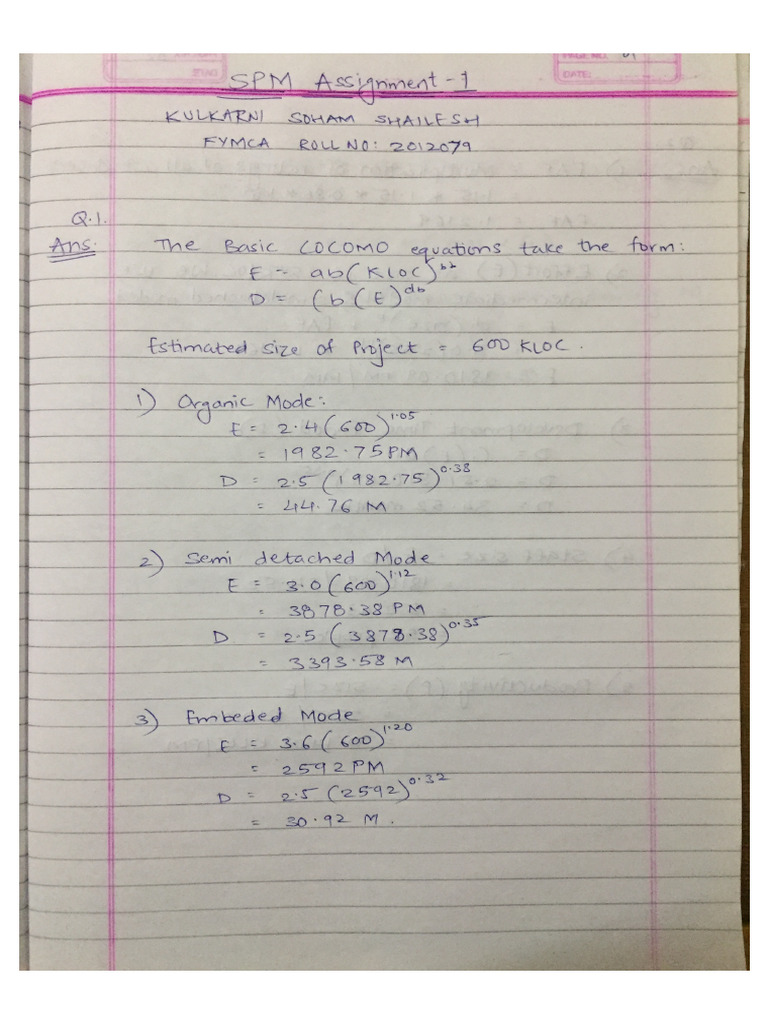 PAGE NO. 01
DATE:
SPM Assignment-1
KULKARNI SOHAM SHAILESH
FYMCA ROLL NO: 2012079
Q.1.
Ans. The Basic COCOMO equations take the form:
E = ab(KLOC)^bb
D = (b(E)^db
Estimated size of Project = 600 KLOC.
1) Organic Mode:
E = 2.4(600)^1.05
= 1982.75PM
D = 2.5(1982.75)^0.38
= 44.76 M
2) Semi detached Mode
E = 3.0(600)^1.12
= 3878.38 PM
D = 2.5(3878.38)^0.35
= 3393.58 M
3) Embeded Mode
E = 3.6(600)^1.20
= 2592 PM
D = 2.5(2592)^0.32
= 30.92 M.